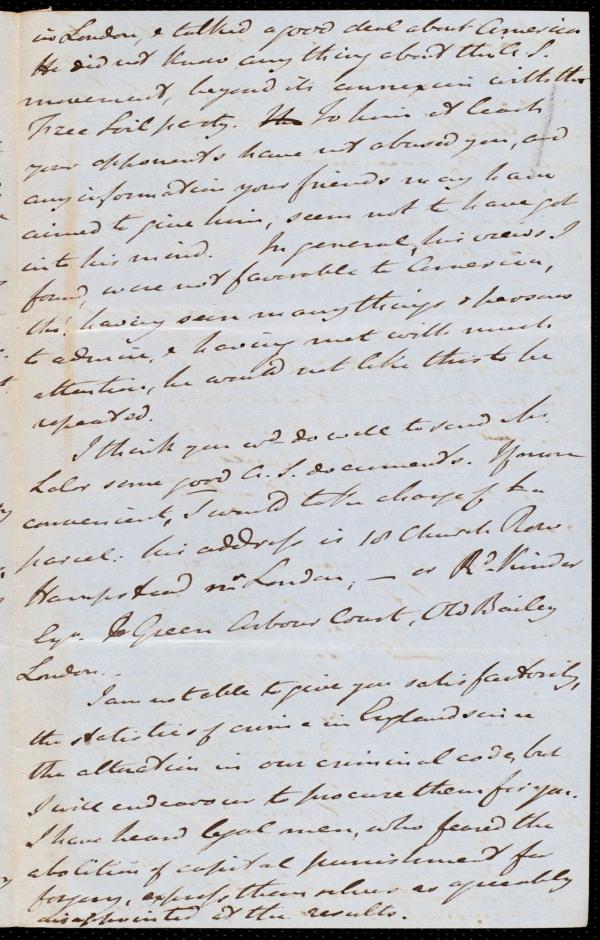 in London, & talked a good deal about America
He did not know anything about the A. S.
movement, beyond its connexion with the
Free Soil party. To him at least
your opponents have not abused you, and
any information your friends may have
aimed to give him, seem not to have got
into his mind. In general, his views I
found, were not favorable to America,
tho' having seen many things & persons
to admire, & having met with much
attention, he would not like this to be
repeated.
I think you wd do well to send Mr.
Lalor some good A. S. documents. If more
convenient, I would take charge of the
parcel: his address is 18 Church Row
Hampstead nr London, — or Rd. Kinder
Esqr. Green Arbour Court, Old Bailey
London..
I am not able to give you satisfactorily,
the statistics of crime in England since
the alteration in our criminal code, but
I will endeavour to procure them for you.
I have heard legal men, who feared the
abolition of capital punishment for
forgery, express themselves as agreeably
disappointed at the results.